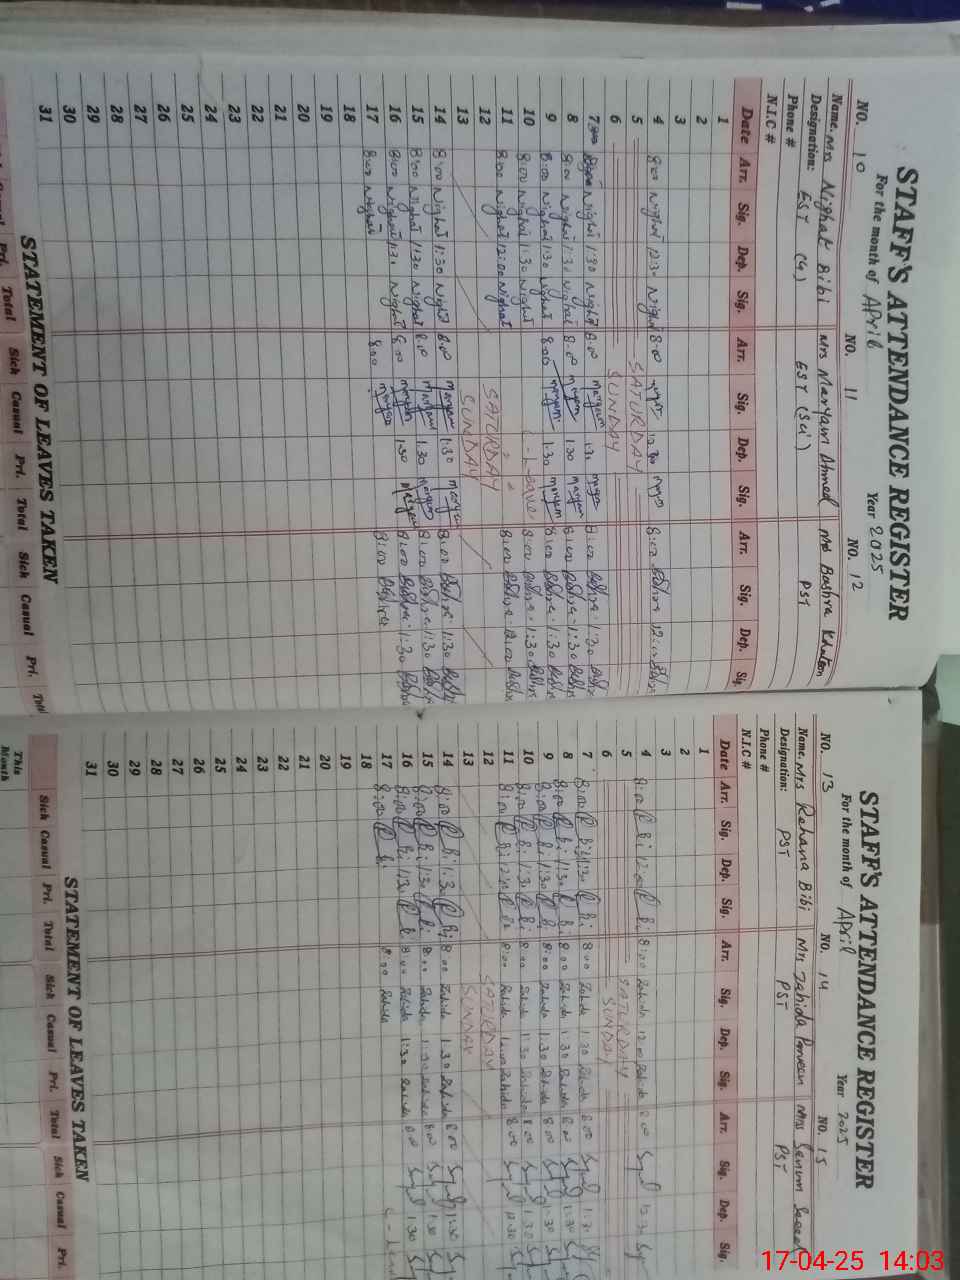 STAFF'S ATTENDANCE REGISTER
For the month of April Year 2025
NO. 10 NO. 11 NO. 12
Name. Mrs Nighat Bibi Mrs Maryam Ahmed Mrs Bushra Khatoon
Designation: EST (G) EST (Sci) PST
Phone #
N.I.C #
Date Arr. Sig. Dep. Sig. Arr. Sig. Dep. Sig. Arr. Sig. Dep. Sig.
1
2
3
4 8:00 Nighat 12:30 Nighat 8:00 12:30 8:00 Bushra 12:00 Bushra
5 SATURDAY
6 SUNDAY
7 Nighat 1:30 Nighat 8:00 Maryam 1:30 Maryam 8:00 Bushra 1:30 Bushra
8 8:00 Nighat 1:30 Nighat 8:00 Maryam 1:30 Maryam 8:00 Bushra 1:30 Bushra
9 8:00 Nighat 1:30 Nighat 8:00 Maryam 1:30 Maryam 8:00 Bushra 1:30 Bushra
10 8:00 Nighat 1:30 Nighat Leave 8:00 Bushra 1:30 Bushra
11 8:00 Nighat 12:00 Nighat " " 8:00 Bushra 12:00 Bushra
12 SATURDAY
13 SUNDAY
14 8:00 Nighat 1:30 Nighat 8:00 Maryam 1:30 Maryam 8:00 Bushra 1:30 Bushra
15 8:00 Nighat 1:30 Nighat 8:00 Maryam 1:30 Maryam 8:00 Bushra 1:30 Bushra
16 8:00 Nighat 1:30 Nighat 8:00 Maryam 1:30 Maryam 8:00 Bushra 1:30 Bushra
17 8:00 Nighat 8:00 Maryam 8:00 Bushra
18
19
20
21
22
23
24
25
26
27
28
29
30
31
STATEMENT OF LEAVES TAKEN
Pri. Total Sick Casual Pri. Total Sick Casual Pri. Total
STAFF'S ATTENDANCE REGISTER
For the month of April Year 2025
NO. 13 NO. 14 NO. 15
Name. Mrs Rehana Bibi Mrs Zahida Parveen Mrs
Designation: PST PST PST
Phone #
N.I.C #
Date Arr. Sig. Dep. Sig. Arr. Sig. Dep. Sig. Arr. Sig. Dep. Sig.
1
2
3
4 8:00 R Bi 12:00 R Bi 8:00 Zahida 12:00 Zahida 8:00 12:30
5 SATURDAY
6 SUNDAY
7 8:00 R Bi 1:30 R Bi 8:00 Zahida 1:30 Zahida 8:00 1:30
8 8:00 R Bi 1:30 R Bi 8:00 Zahida 1:30 Zahida 8:00 1:30
9 8:00 R Bi 1:30 R Bi 8:00 Zahida 1:30 Zahida 8:00 1:30
10 8:00 R Bi 1:30 R Bi 8:00 Zahida 1:30 Zahida 8:00 1:30
11 8:00 R Bi 12:00 R Bi 8:00 Zahida 12:00 Zahida 8:00 12:30
12 SATURDAY
13 SUNDAY
14 8:00 R Bi 1:30 R Bi 8:00 Zahida 1:30 Zahida 8:00 1:30
15 8:00 R Bi 1:30 R Bi 8:00 Zahida 1:30 Zahida 8:00 1:30
16 8:00 R Bi 1:30 R Bi 8:00 Zahida 1:30 Zahida 8:00 1:30
17 8:00 R Bi 8:00 Zahida
18
19
20
21
22
23
24
25
26
27
28
29
30
31
STATEMENT OF LEAVES TAKEN
Sick Casual Pri. Total Sick Casual Pri. Total Sick Casual Pri.
This Month
17-04-25 14:03